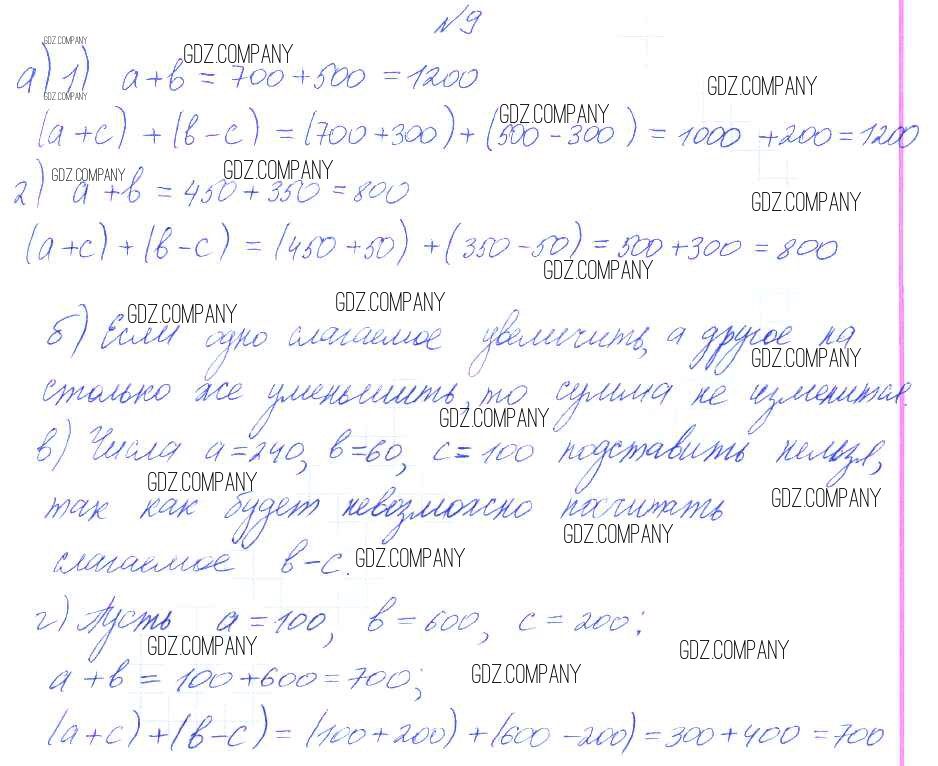 №9
GDZ.COMPANY
GDZ.COMPANY
а) 1) а+в = 700+500 = 1200
GDZ.COMPANY
GDZ.COMPANY
GDZ.COMPANY
(а+с) + (в-с) = (700+300)+(500-300) = 1000+200=1200
GDZ.COMPANY
GDZ.COMPANY
2) а+в = 450+350=800
GDZ.COMPANY
(а+с)+(в-с) = (450+50)+(350-50)=500+300=800
GDZ.COMPANY
GDZ.COMPANY
GDZ.COMPANY
б) Если одно слагаемое увеличить, а другое на
GDZ.COMPANY
столько же уменьшить, то сумма не изменится.
GDZ.COMPANY
в) Числа а=240, в=60, с=100 подставить нельзя,
GDZ.COMPANY
GDZ.COMPANY
так как будет невозможно посчитать
GDZ.COMPANY
слагаемое в-с.
GDZ.COMPANY
г) Пусть а=100, в=600, с=200:
GDZ.COMPANY
GDZ.COMPANY
а+в = 100+600=700;
GDZ.COMPANY
(а+с)+(в-с)=(100+200)+(600-200)=300+400=700